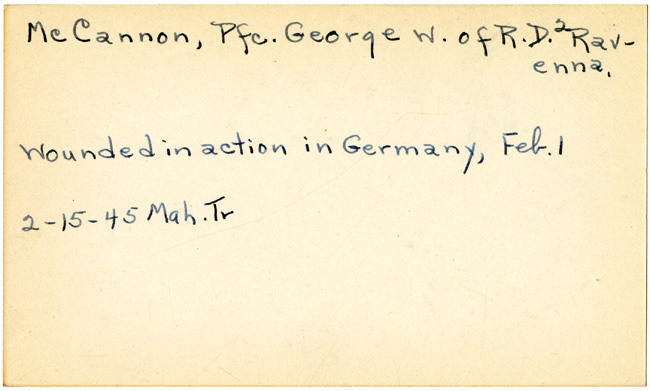 McCannon, Pfc. George W. of R.D.2 Rav-
enna.
Wounded in action in Germany, Feb. 1
2-15-45 Mah. Tr